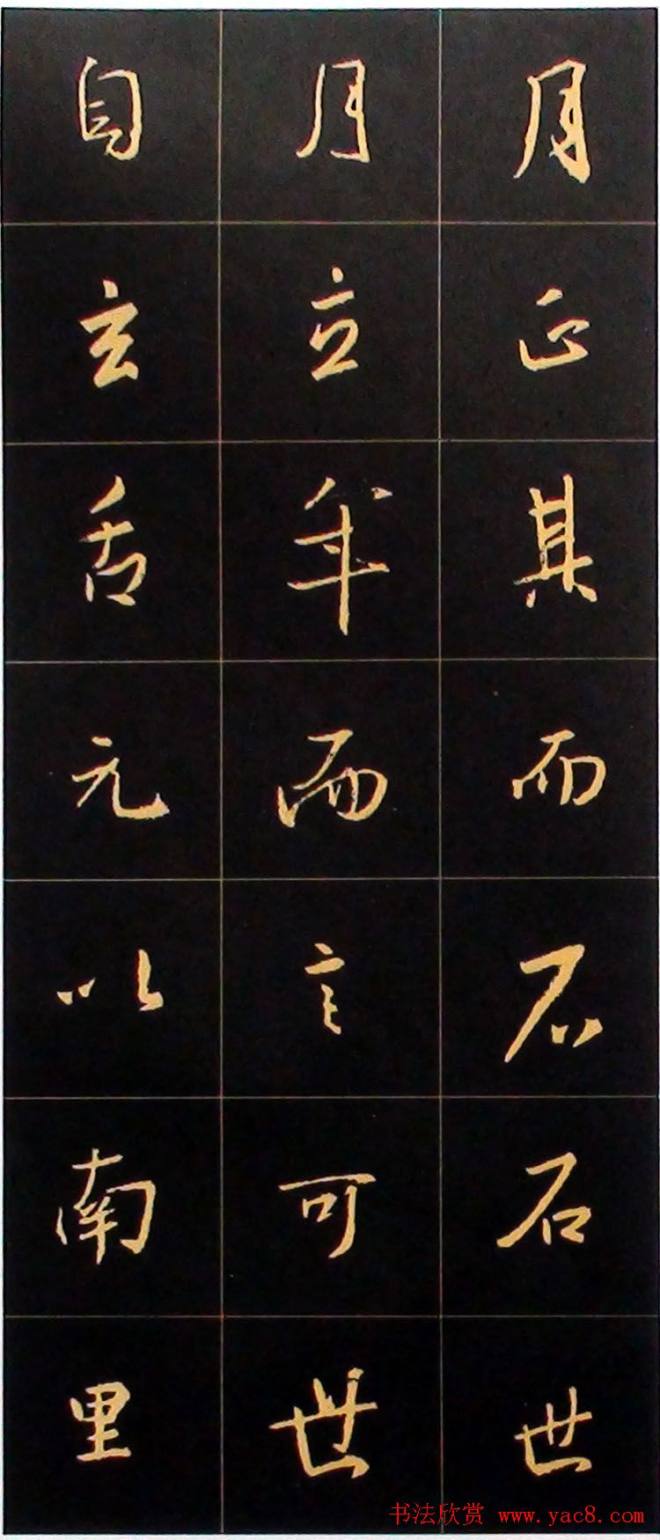 月正其而不石世
月立年而言可世
自玄舌元以南里
书法欣赏 www.yac8.com